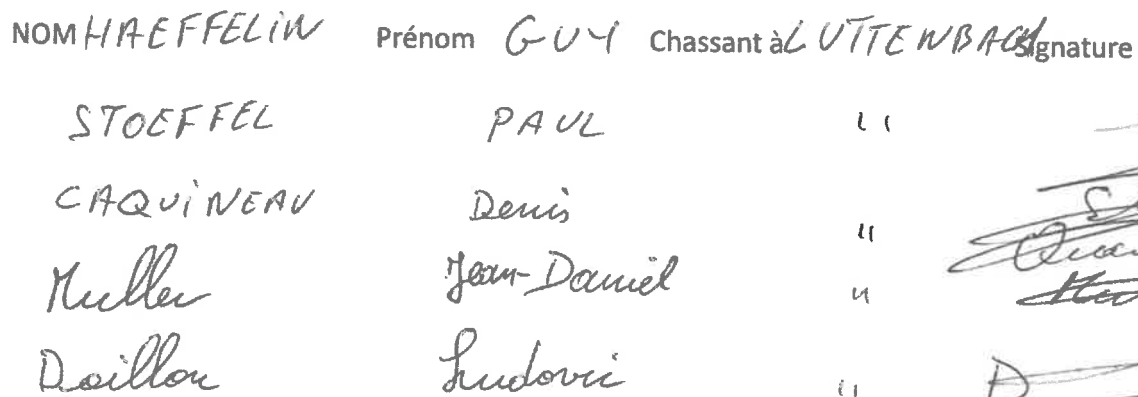 NOM HAEFFELIN Prénom GUY Chassant à LUTTENBACH Signature
STOEFFEL PAUL "
CAQUINEAU Denis "
Muller Jean-Daniel "
Doillon Ludovic "